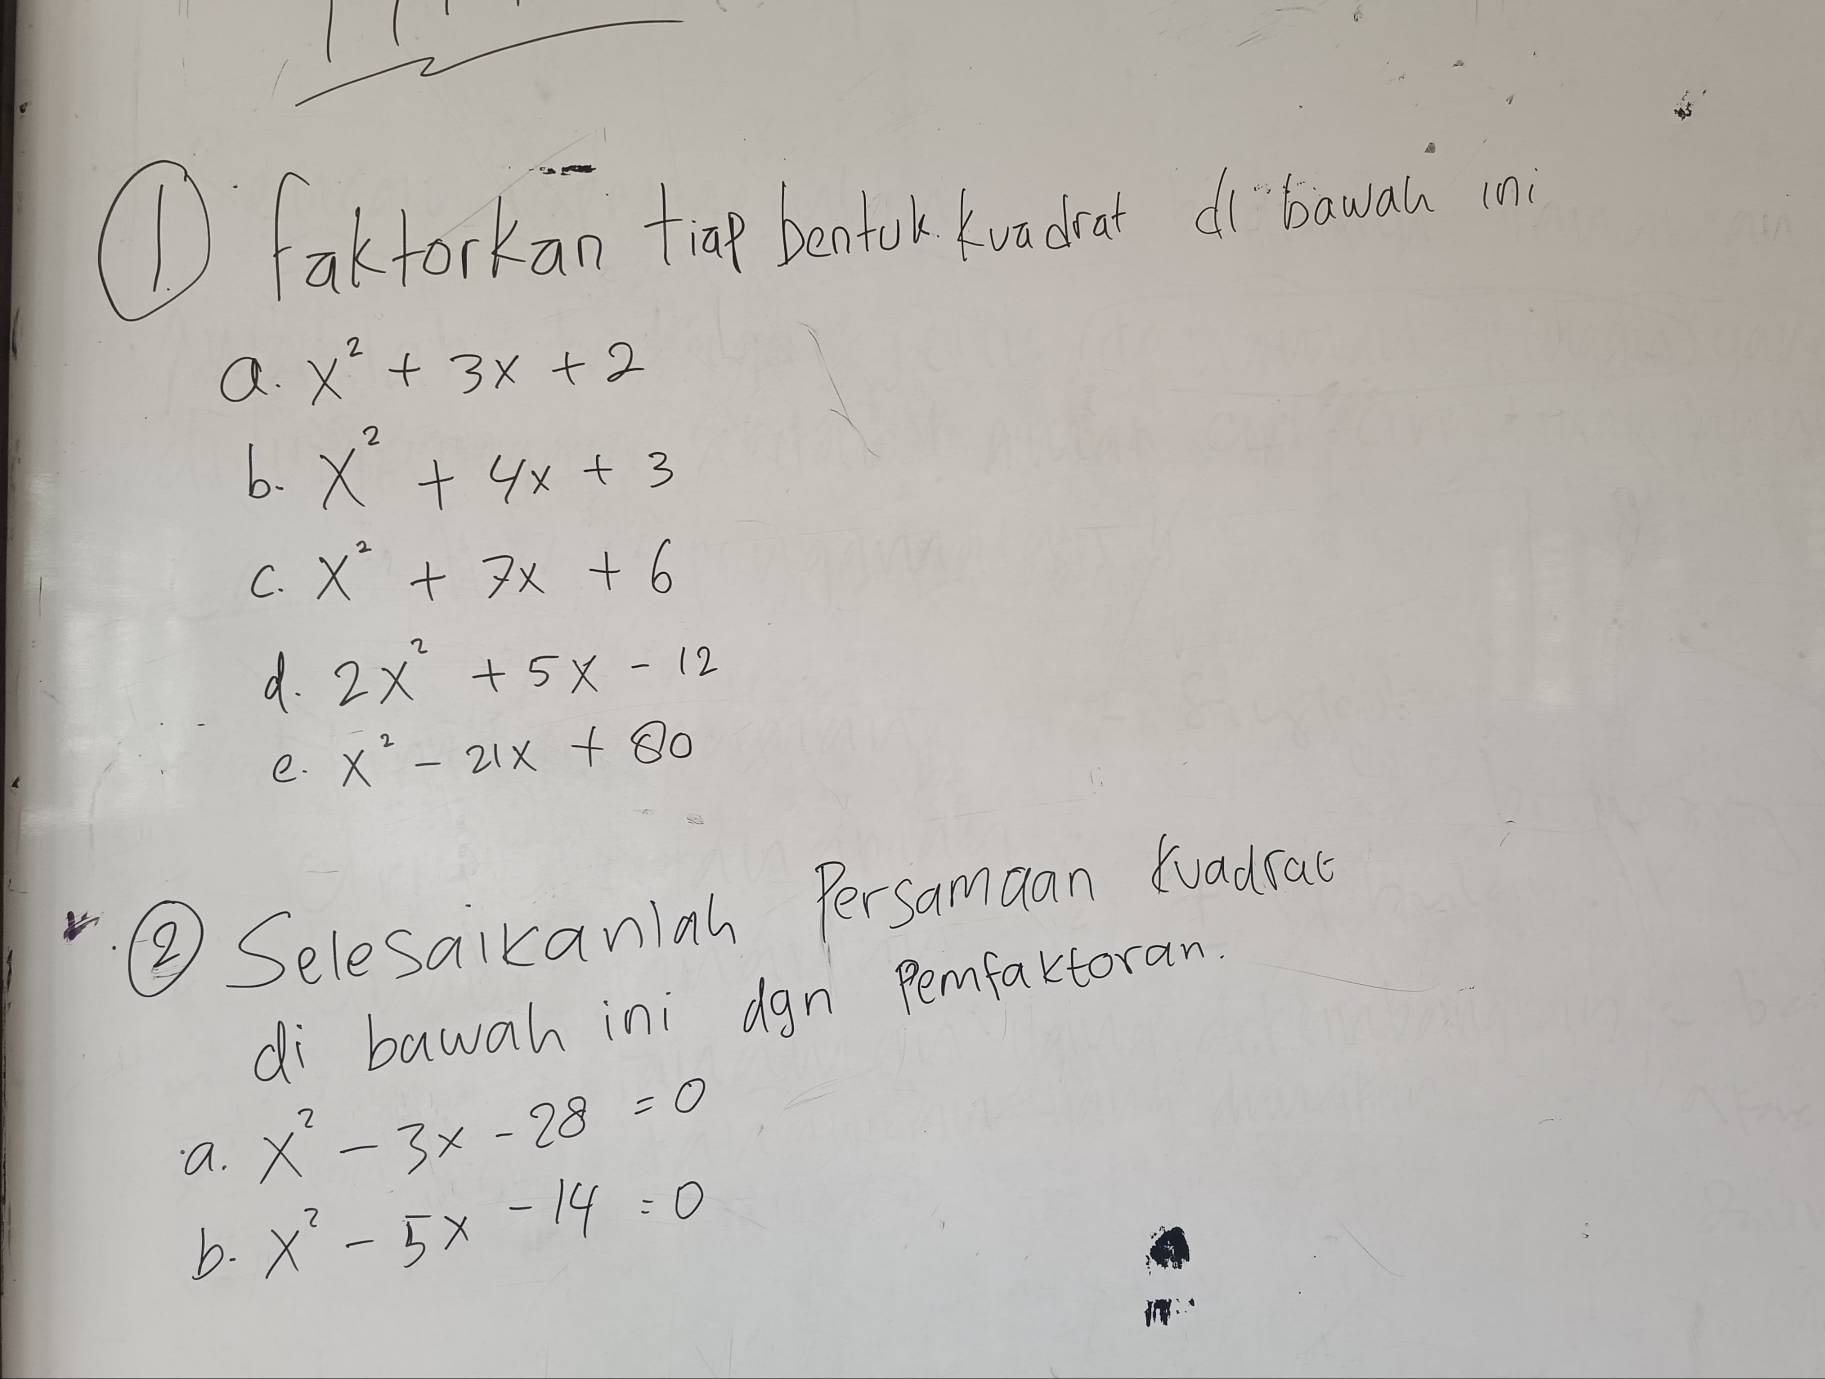 ① Faktorkan tiap bentuk kuadrat di bawah ini
a. x² + 3x + 2
b. x² + 4x + 3
c. x² + 7x + 6
d. 2x² + 5x - 12
e. x² - 21x + 80
② Selesaikanlah Persamaan kuadrat
di bawah ini dgn Pemfaktoran.
a. x² - 3x - 28 = 0
b. x² - 5x - 14 = 0